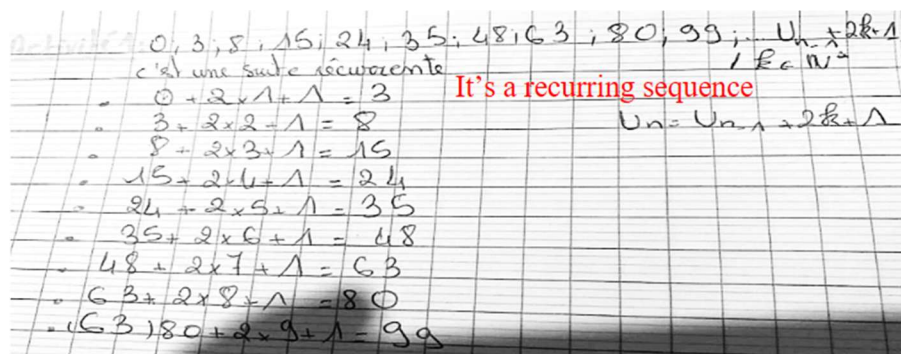 0, 3, 8, 15, 24, 35, 48, 63, 80, 99, ... Un-1 + 2k+1
/ k ∈ IN*
c'est une suite récurrente
It's a recurring sequence
. 0 + 2×1 + 1 = 3
Un = Un-1 + 2k + 1
. 3 + 2×2 + 1 = 8
. 8 + 2×3 + 1 = 15
. 15 + 2×4 + 1 = 24
. 24 + 2×5 + 1 = 35
. 35 + 2×6 + 1 = 48
. 48 + 2×7 + 1 = 63
. 63 + 2×8 + 1 = 80
. (63) 80 + 2×9 + 1 = 99